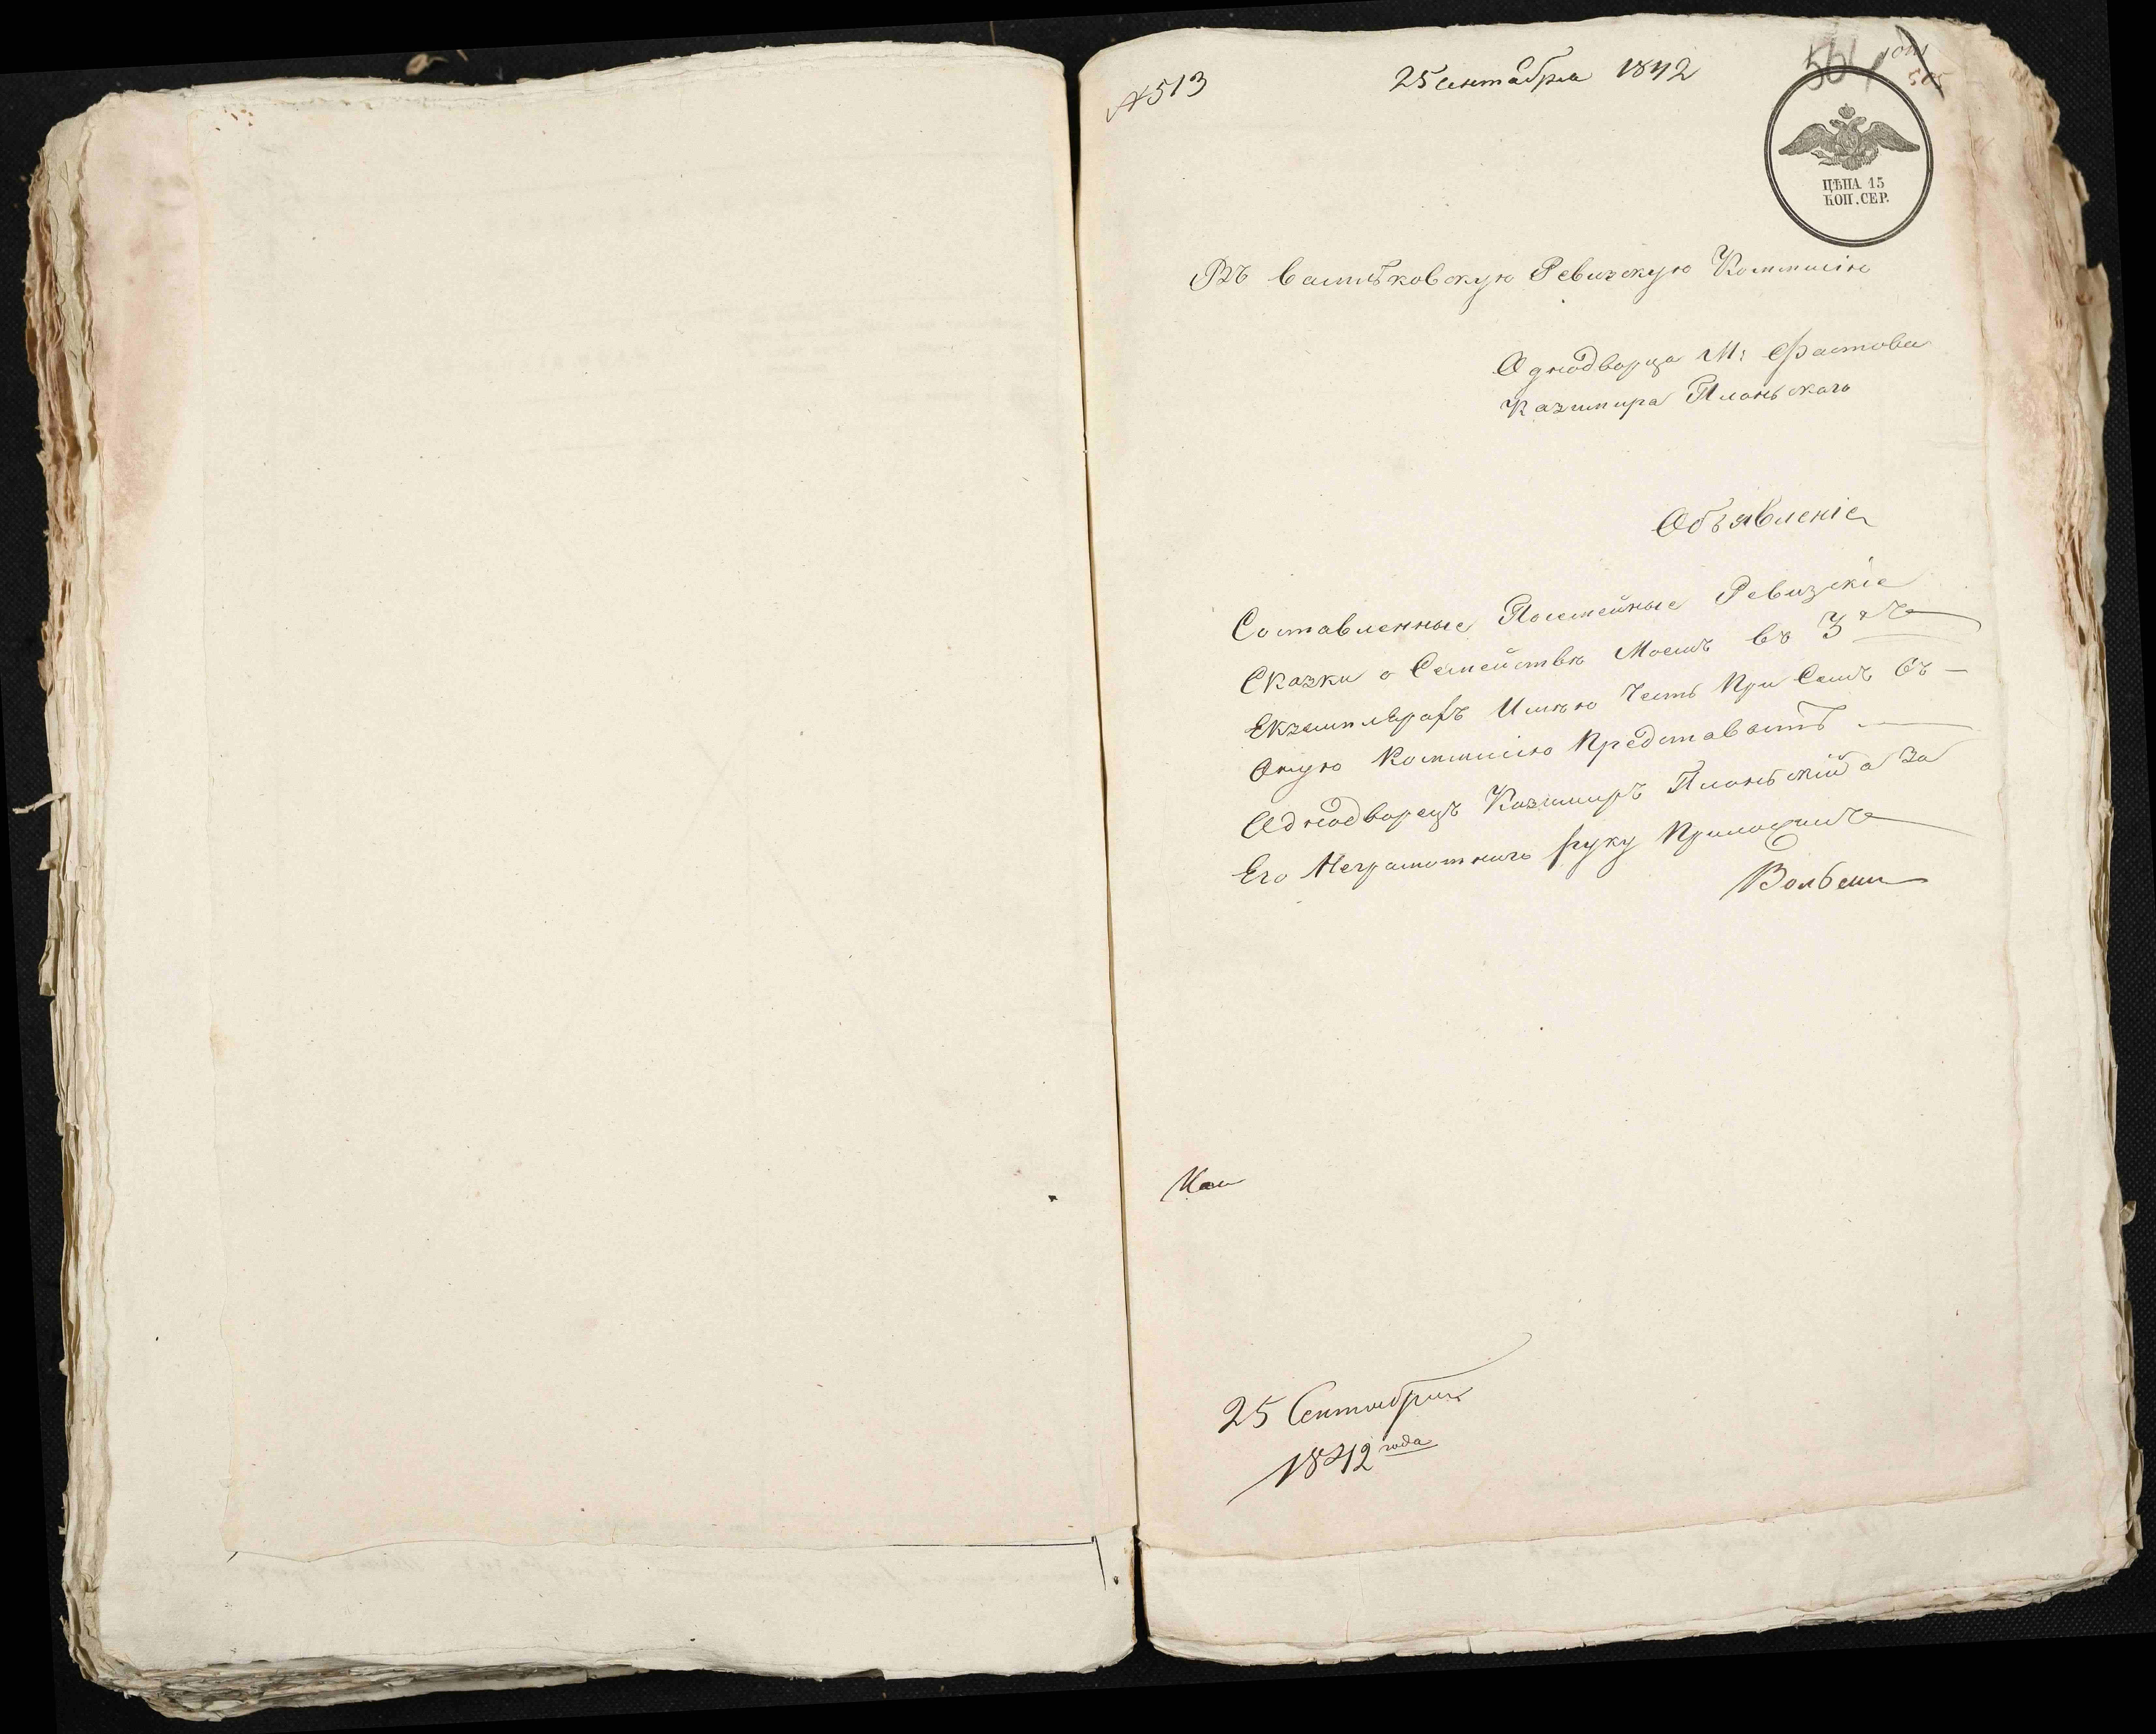 № 513
25 сентября 1842
564
505
ЦѢНА 15
КОП. СЕР.
Въ Васильковскую Ревизскую Коммисію
Однодворца М: Фастова
Казимира Плоньского
Объявленіе
Составленные Посемейные Ревизскіе
Сказки о Семействѣ Моемъ въ 3хъ
Екземплярахъ Имѣю Честь При Семъ въ
Оную Коммисію Представить
Однодворецъ Казимиръ Плоньскій а За
Его Неграмотного руку Приложилъ
25 Сентября
1842 года